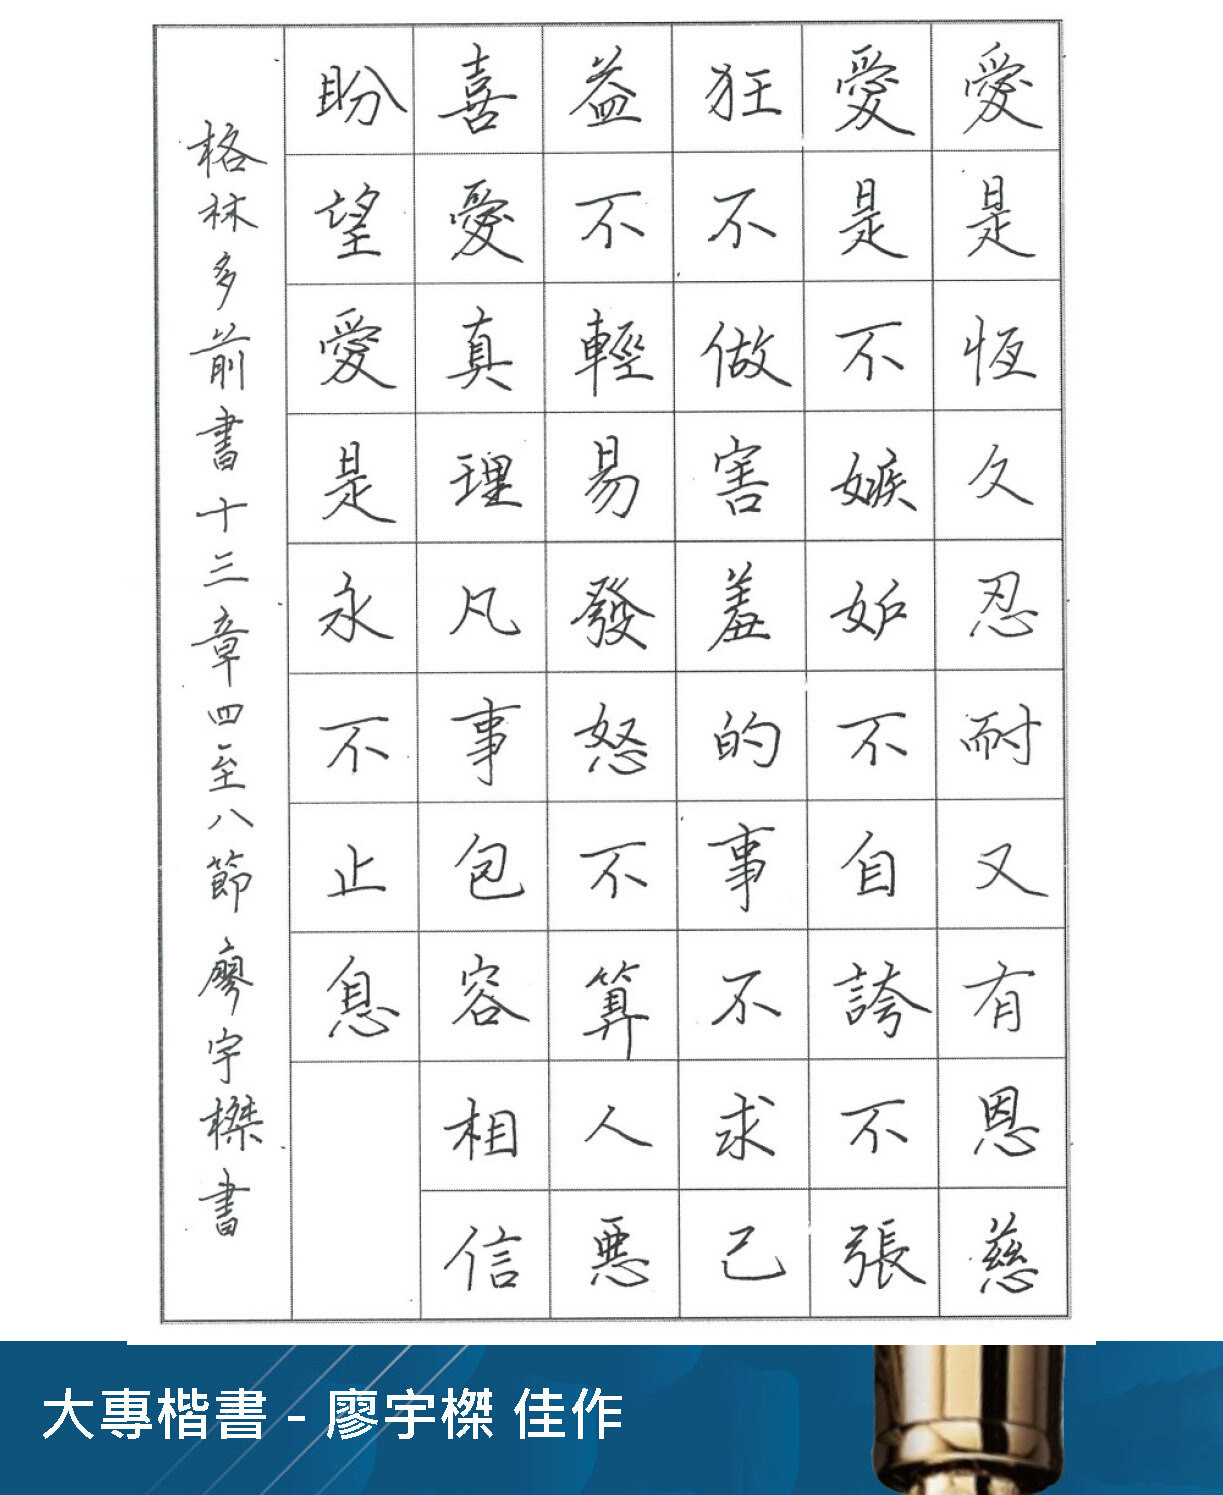 愛是恆久忍耐又有恩慈
愛是不嫉妒不自誇不張
狂不做害羞的事不求己
益不輕易發怒不算人惡
喜愛真理凡事包容相信
盼望愛是永不止息
格林多前書十三章四至八節 廖宇榤書
大專楷書 - 廖宇榤 佳作